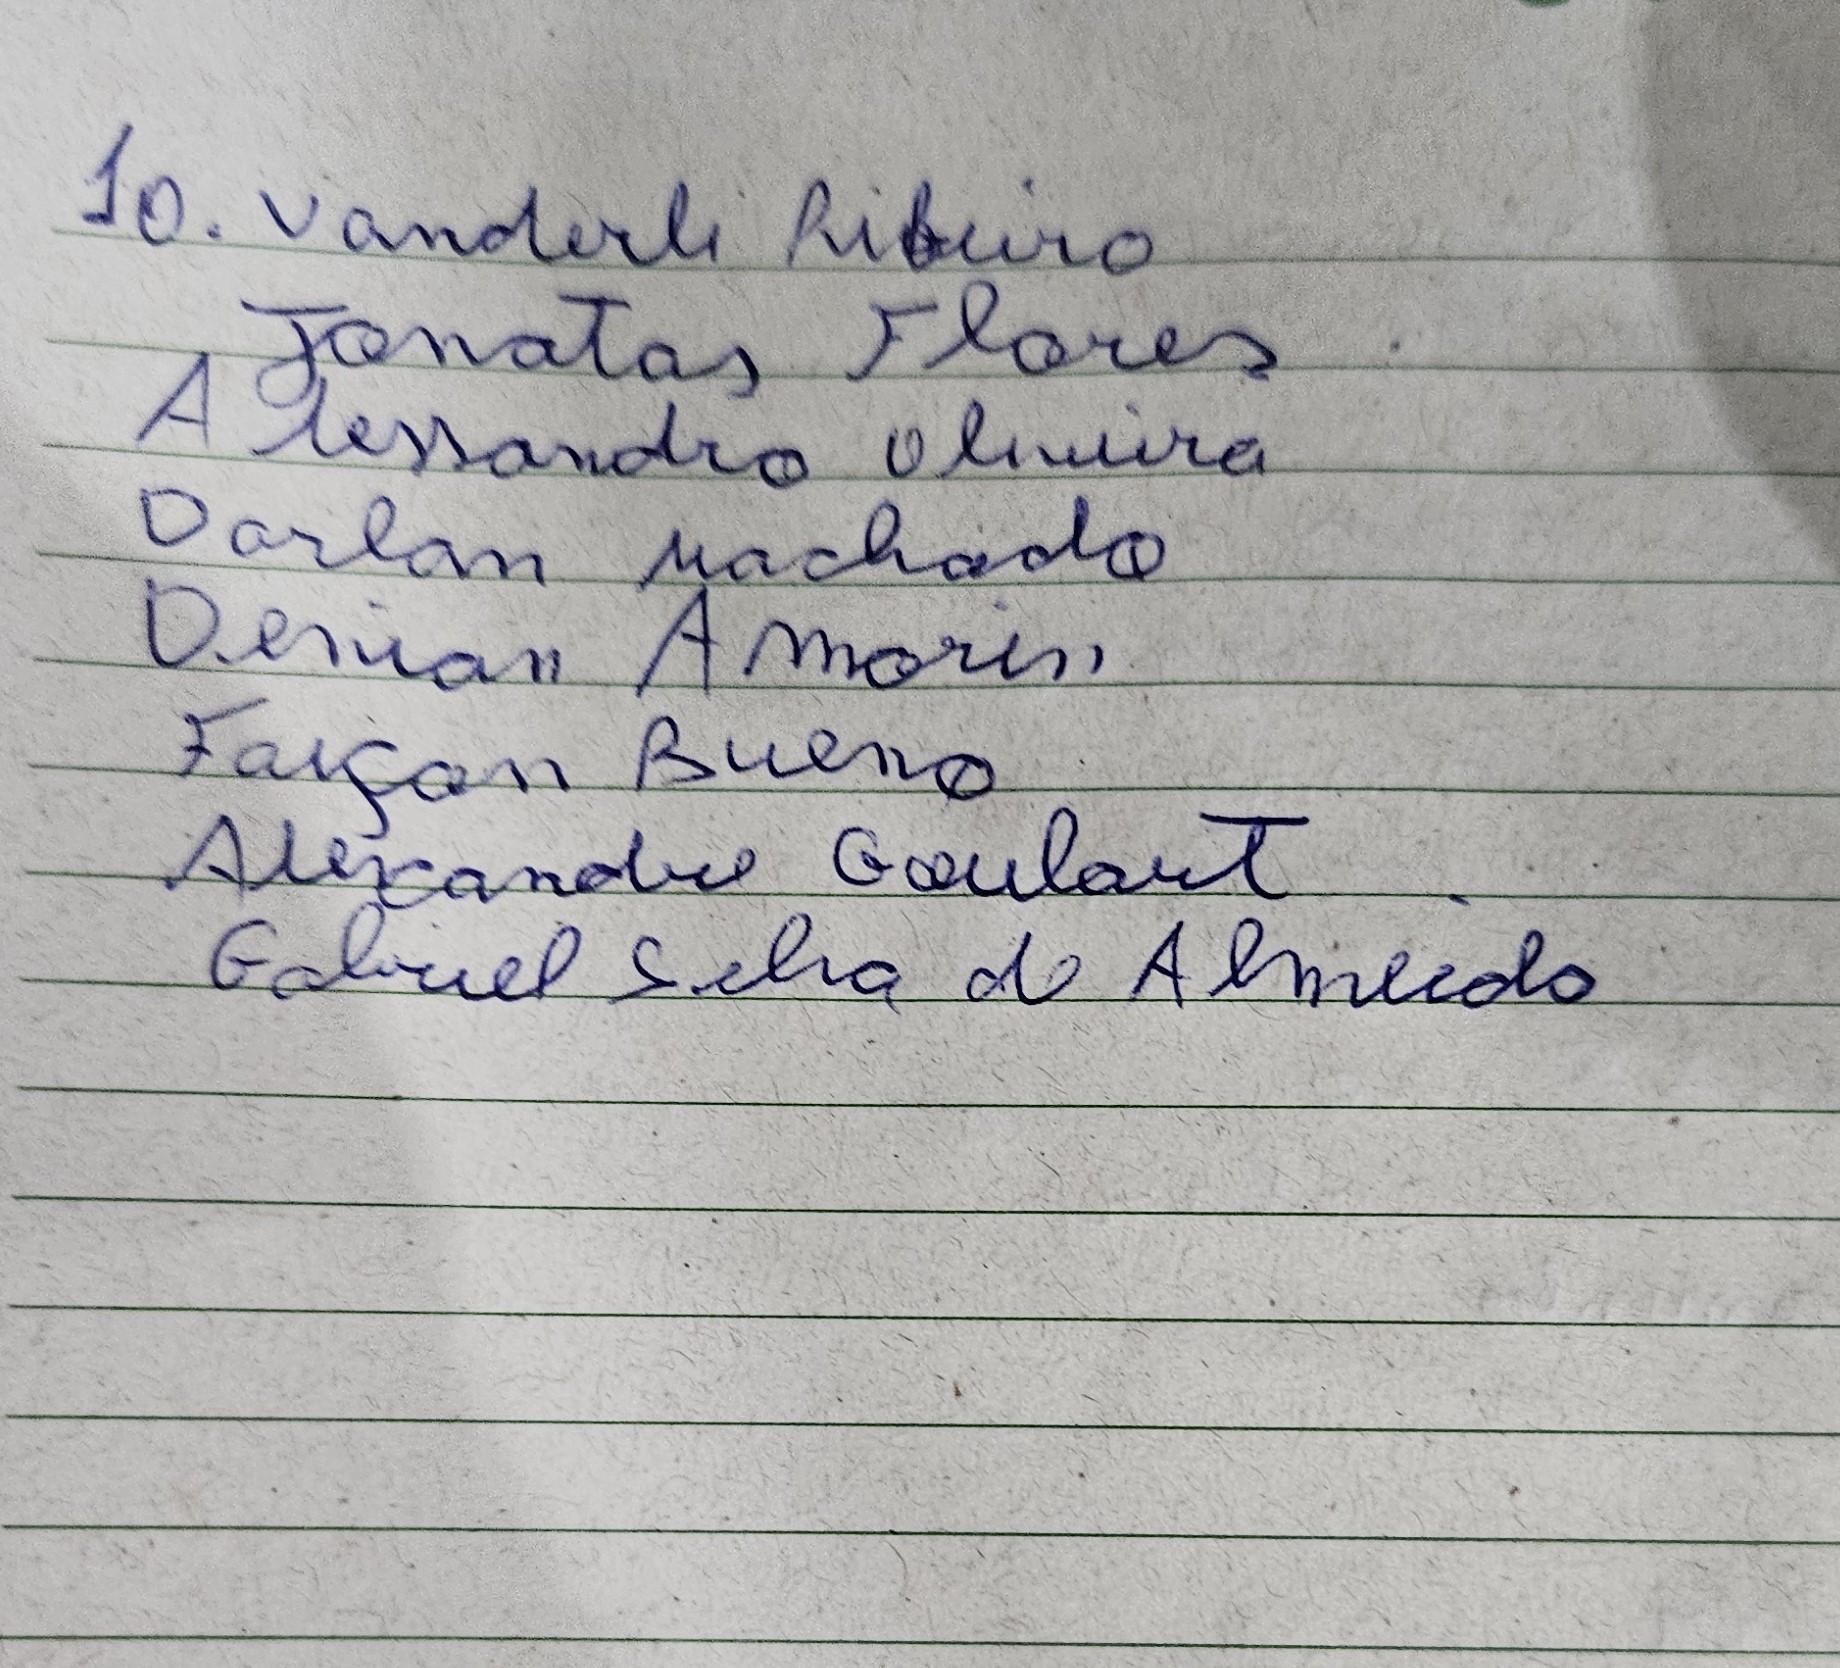 10. Vanderli Ribeiro
Jonatas Flores
Alessandro Oliveira
Darlan Machado
Denian Amorin
Bueno
Alexandre Goulart
Gabriel Silva de Almeida